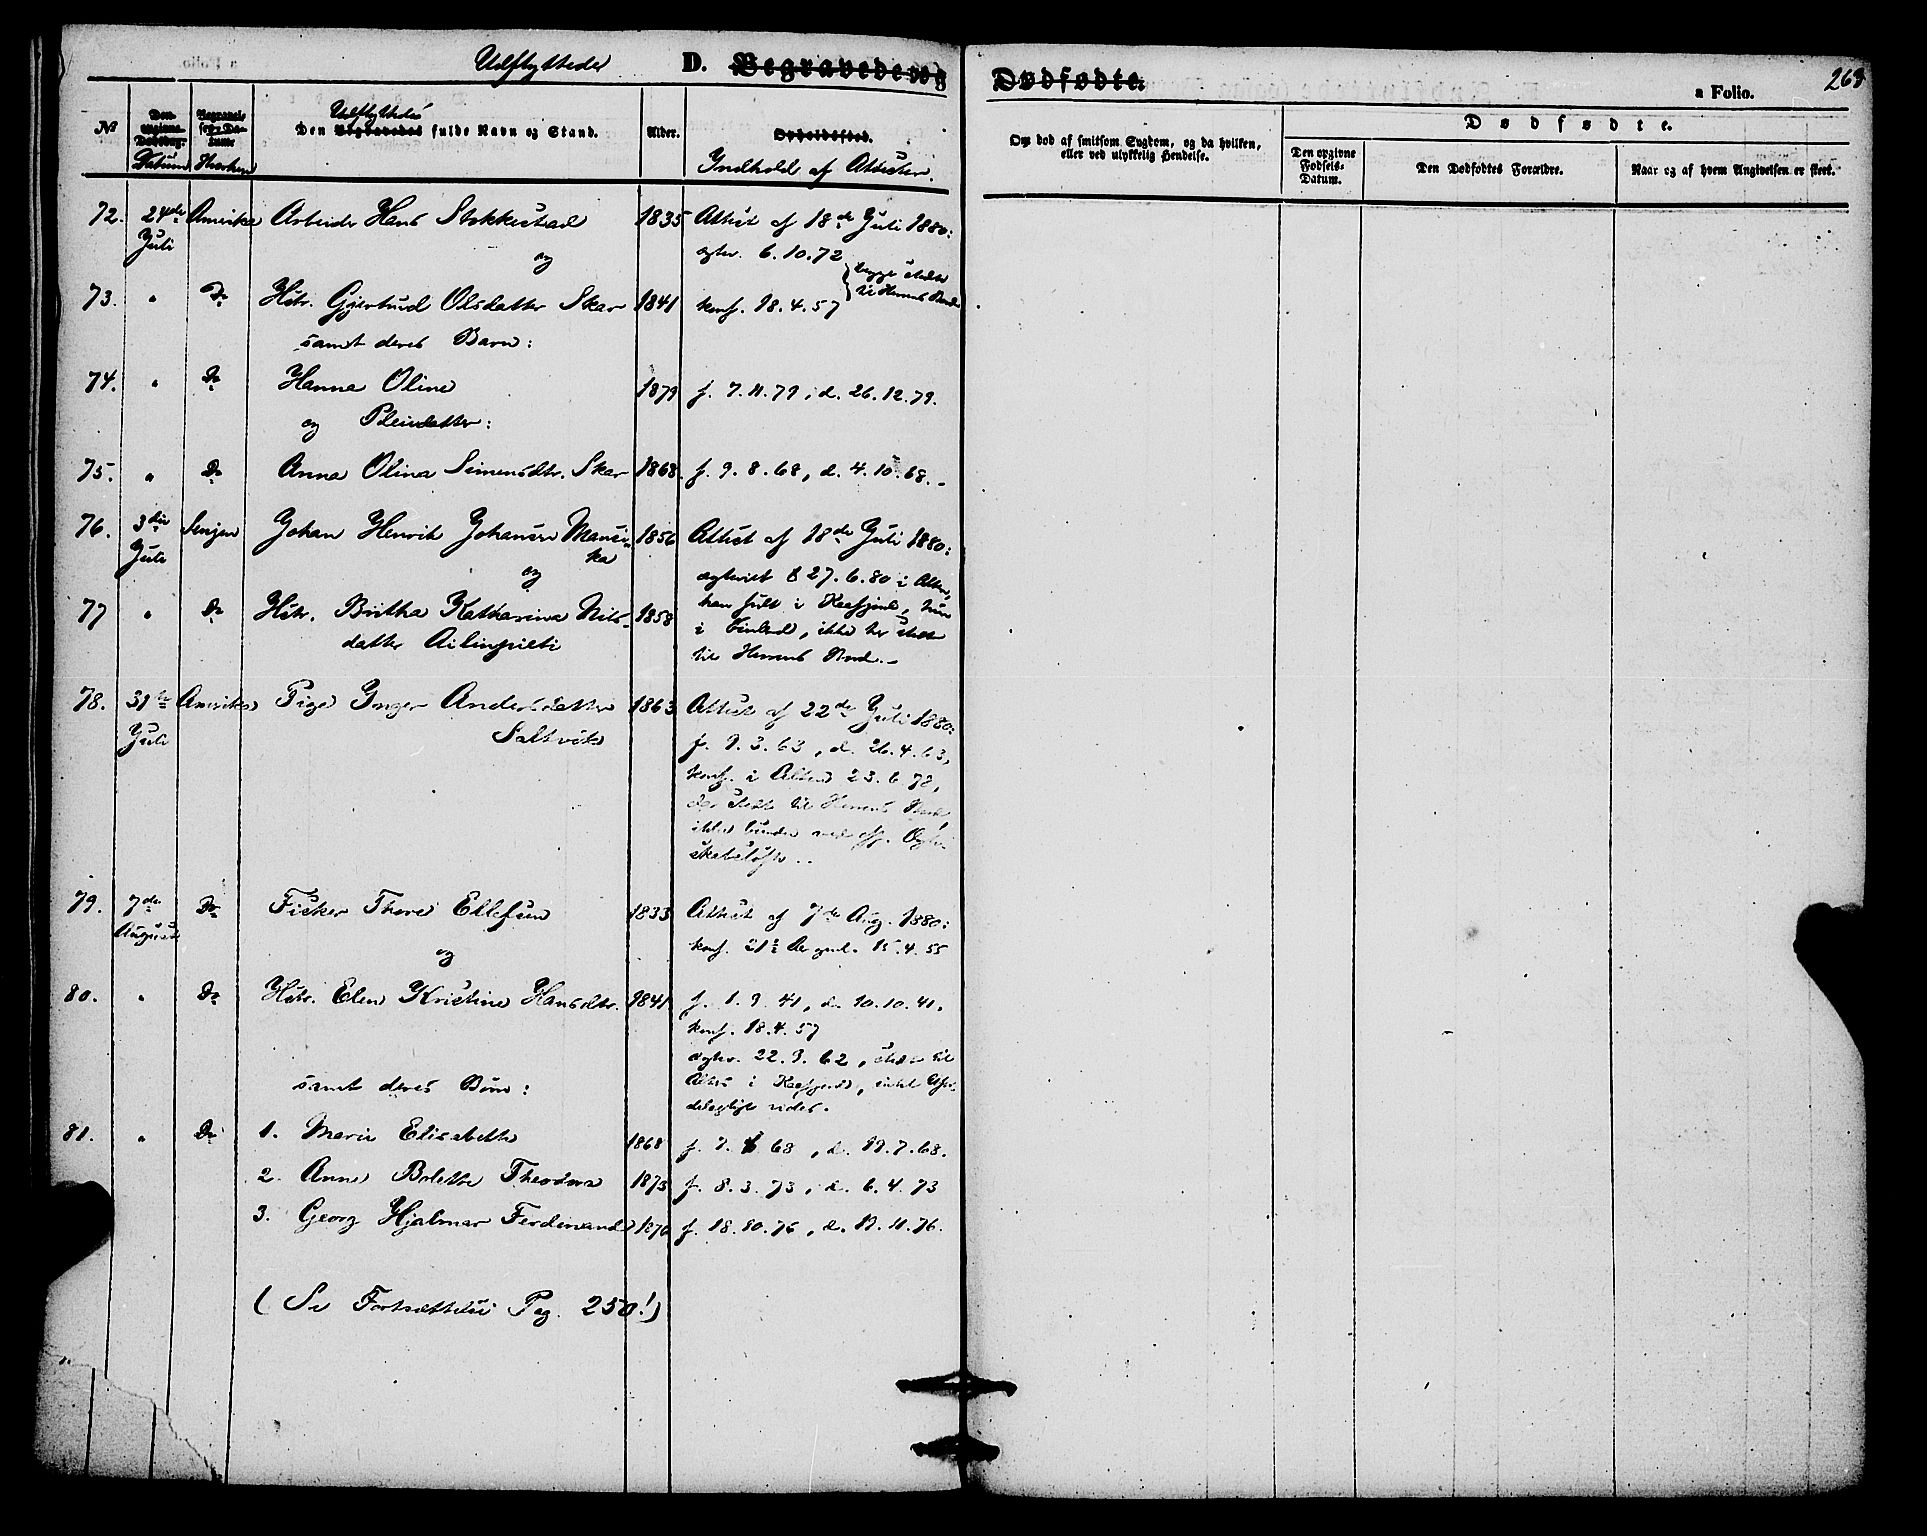 Udflyttede D. Begravede og Dødfødte.
a Folio. 263
№
Den opgivne Dødsdag.
Datum
Begravelses-Datum
Hvorhen
Udflyttedes
Den Begravedes fulde Navn og Stand.
Alder.
Opholdssted.
Indhold af Attester.
Om død af smitsom Sygdom, og da hvilken,
eller ved ulykkelig Hendelse.
Dødfødte.
Den opgivne
Fødsels-
Datum.
Den Dødfødtes Forældre.
Naar og af hvem Angivelsen er skeet.
72. 24de Amerika Arbeider Hans Stokkestad 1835 Attest af 18de Juli 1880:
Juli og ægtev. 6.10.72
begge stedte
til Herrens Bord
73. " Do Hstr. Gjertrud Olsdatter Skar 1841 konf. 18.4.57
samt deres Barn:
74. " Do Hanna Oline 1879 f. 7.11.79, d. 26.12.79.
og Pleiedatter:
75. " Do Anna Olina Simensdtr. Skar 1868. f. 9.8.68, d. 4.10.68.-
76. 3die Senjen Johan Henrik Johansen 1856 Attest af 18de Juli 1880:
Juli og ægteviet 27.6.80 i Alten,
77 " Do Hstr. Britha Katharina Nils- 1858 han født i Kaafjord, hun
datter i Finland, ikke her stedte
til Herrens Bord.-
78. 31te Amerika Pige Inger Andersdatter 1863 Attest af 22de Juli 1880:
Juli Saltvik f. 9.3.63, d. 26.4.63,
konf. i Alten 23.6.78,
der stedt til Herrens Bord,
ikke bunden ved off. Ægte-
skabsløfte..
79. 7de Do Fisker Thore Ellefsen 1833 Attest af 7de Aug. 1880:
August og konf. 21½ Aar gml. 15.4.55
80. " Do Hstr. Elen Kristine Hansdtr. 1841. f. 1.9.41, d. 10.10.41,
konf. 18.4.57
ægtev. 22.9.62, stedt til
samt deres Børn: Alters i Kaafjord, intet Ufor-
delagtigt vides.
81. " Do 1. Marie Elisabeth 1868 f. 7.6.68, d. 19.7.68.
2. Anne Bolette Theodora 1873 f. 8.3.73, d. 6.4.73
3. Georg Hjalmar Ferdinand 1876 f. 18.10.76, d. 19.11.76.
(Se Fortsættelse Pag. 250!)